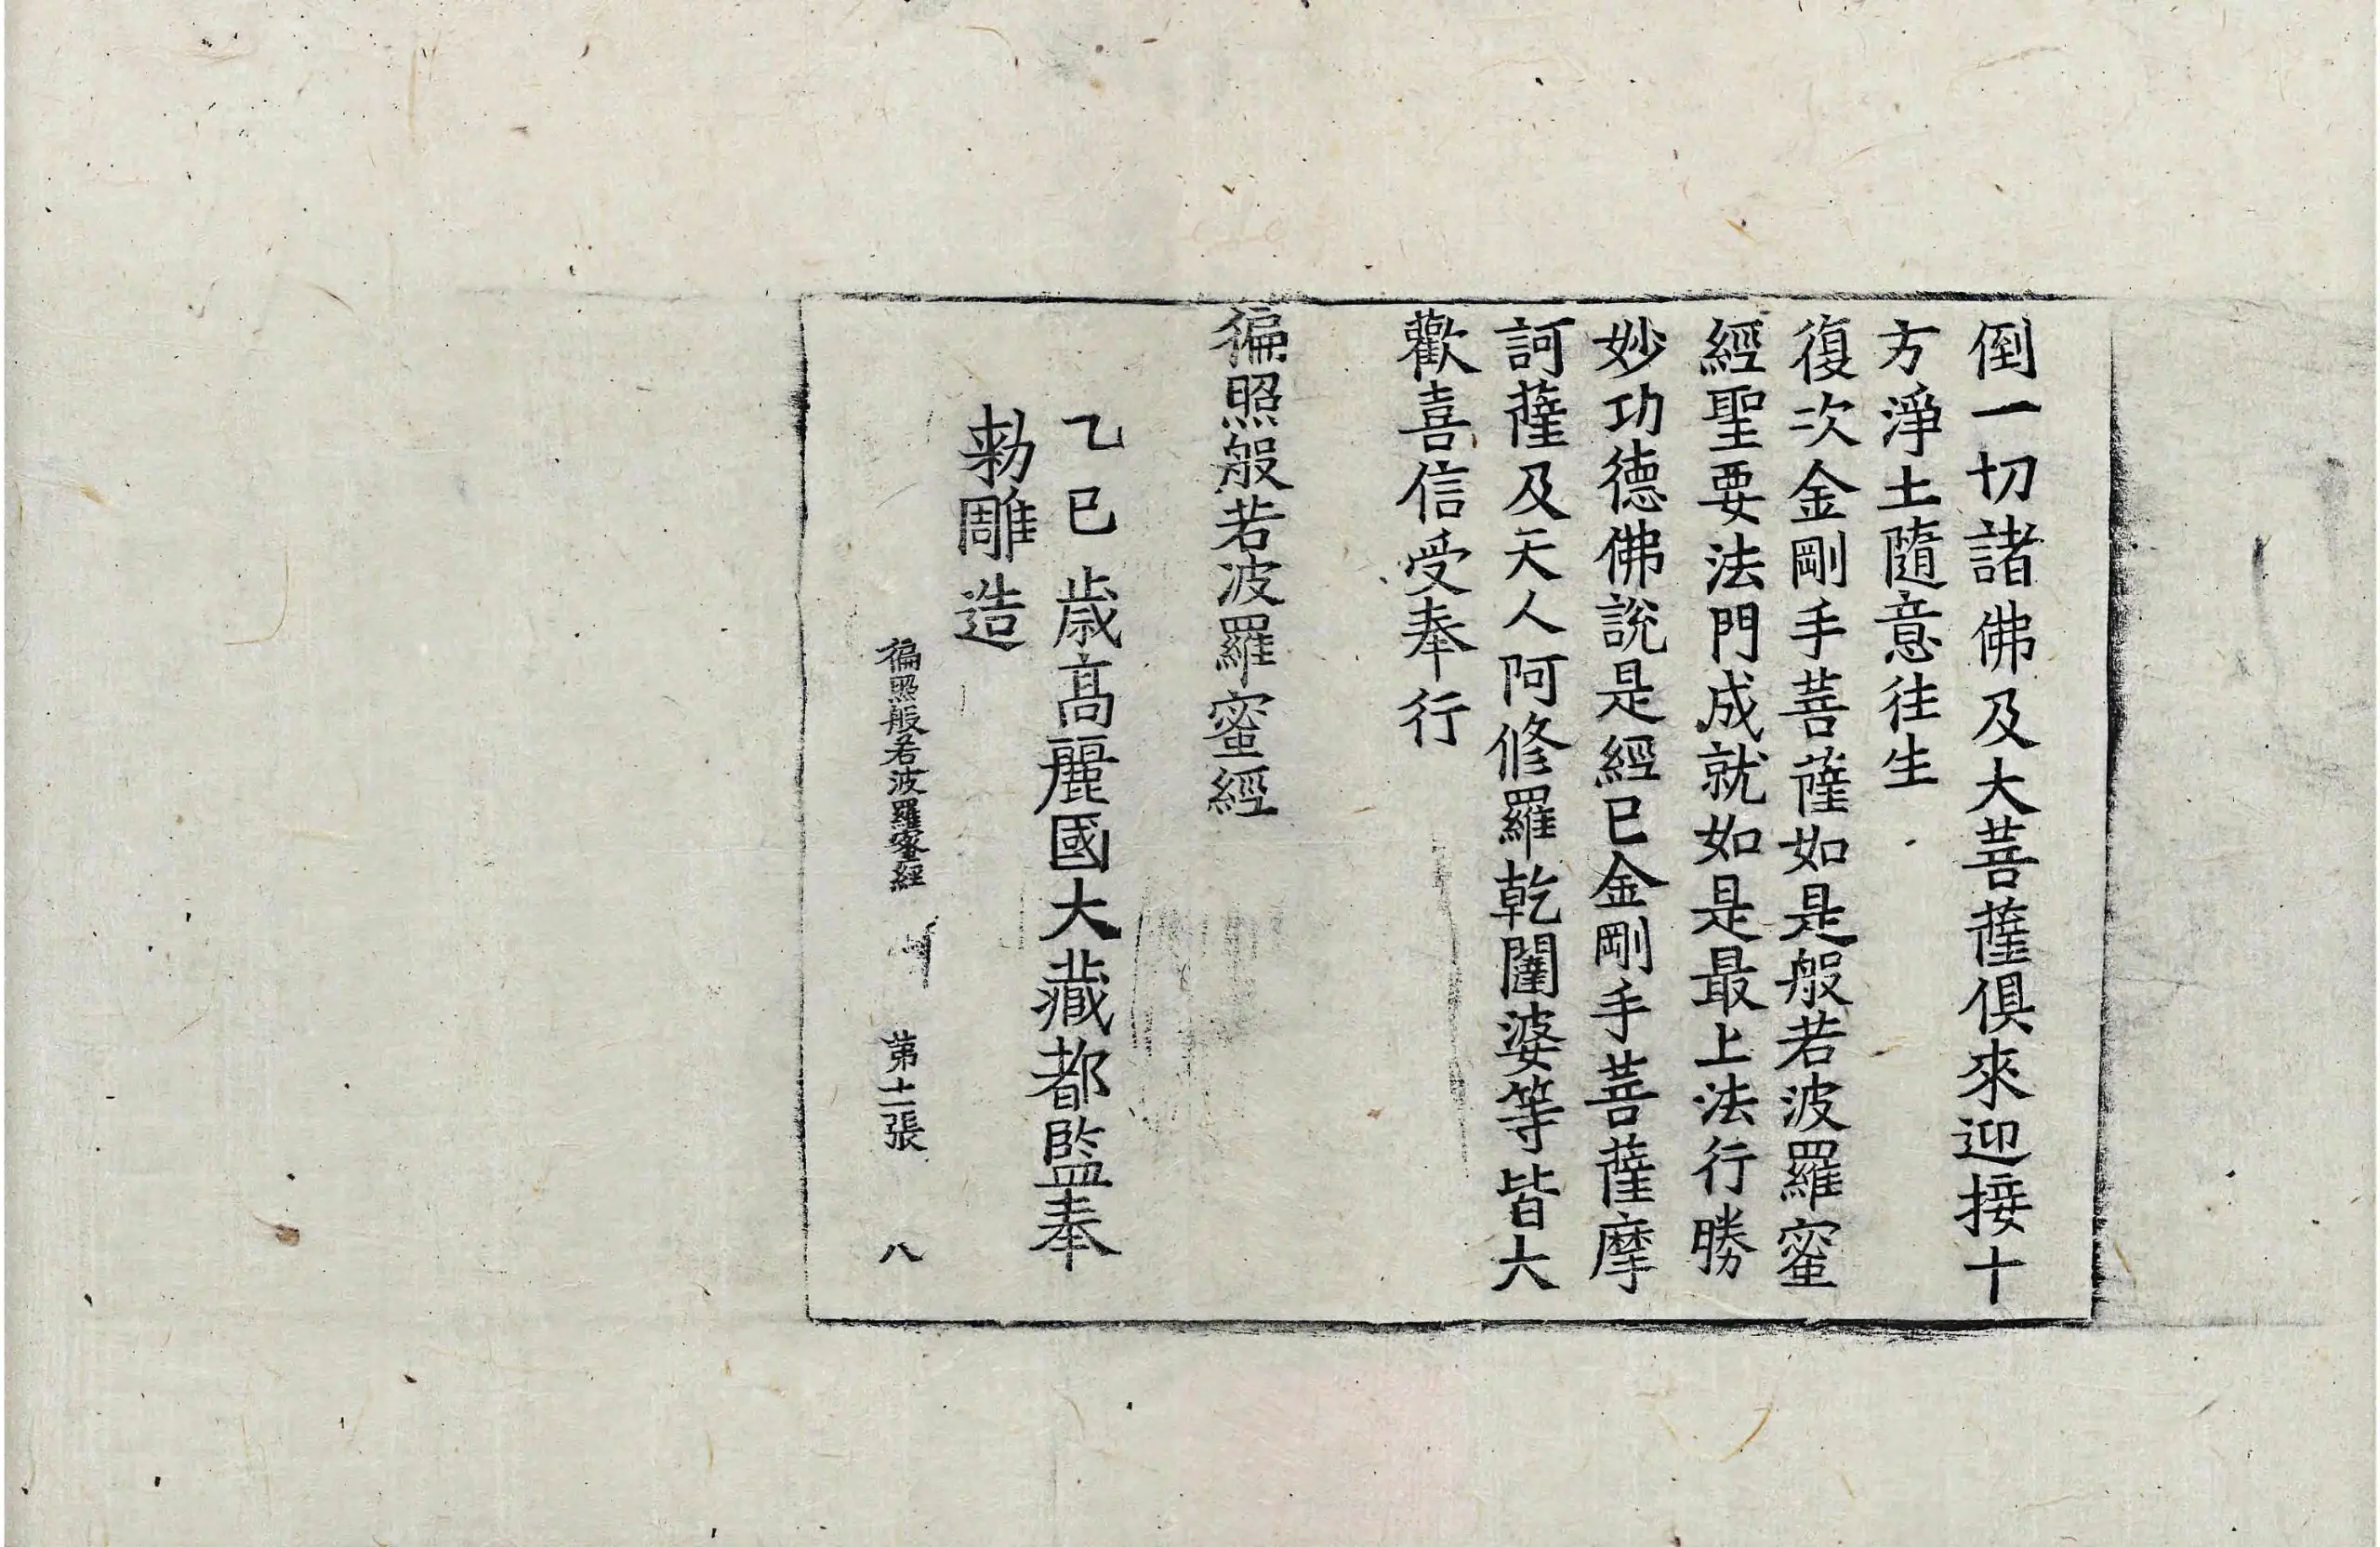 倒一切諸佛及大菩薩俱來迎接十
方淨土隨意往生
復次金剛手菩薩如是般若波羅蜜
經聖要法門成就如是最上法行勝
妙功德佛說是經已金剛手菩薩摩
訶薩及天人阿修羅乾闥婆等皆大
歡喜信受奉行
徧照般若波羅蜜經
乙巳歲高麗國大藏都監奉
勑雕造
徧照般若波羅蜜經 第十二張 八